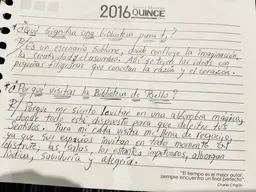 2016 QUINCE
* ¿Qué significa una biblioteca para ti?
R/ Es un escenario sublime, donde confluye la imaginación,
la creatividad y el asombro. Allí se tejen las ideas con
pequeñas filigranas que conectan la razón y el corazón.
* ¿Por qué visitas la Biblioteca de Bello?
R/ Porque me siento levitar en una alfombra mágica,
donde todo está dispuesto para que deleites tus
sentidos. Para mi cada visita me llena de regocijo,
ya que sus espacios invitan en todo momento a
disfrute, las tardes los estantes impetuosos, albergan
historias, sabiduría y alegría.
"El tiempo es el mejor autor,
siempre encuentra un final perfecto"
Charles Chaplin